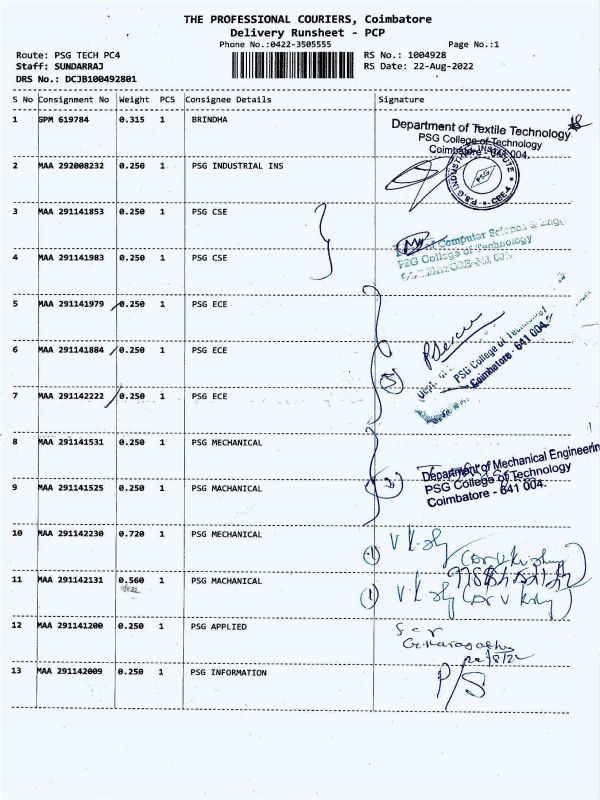 THE PROFESSIONAL COURIERS, Coimbatore
Delivery Runsheet - PCP
Phone No.:0422-3505555 Page No.:1
Route: PSG TECH PC4 RS No.: 1004928
Staff: SUNDARRAJ RS Date: 22-Aug-2022
DRS No.: DCJB100492801
S No Consignment No Weight PCS Consignee Details Signature
1 GPM 619784 0.315 1 BRINDHA
Department of Textile Technology
PSG College of Technology
Coimbatore - 641 004.
2 MAA 292008232 0.250 1 PSG INDUSTRIAL INS
P.S.G. INDUSTRIAL INSTITUTE
PSG
CBE-4
3 MAA 291141853 0.250 1 PSG CSE
Computer Science & Engg
PSG College of Technology
4 MAA 291141983 0.250 1 PSG CSE
COIMBATORE-641 004
5 MAA 291141979 0.250 1 PSG ECE
6 MAA 291141884 0.250 1 PSG ECE
Dept. of
PSG College of Technology
Coimbatore - 641 004.
7 MAA 291142222 0.250 1 PSG ECE
3
8 MAA 291141531 0.250 1 PSG MECHANICAL
Department of Mechanical Engineerin
PSG College of Technology
Coimbatore - 641 004.
9 MAA 291141525 0.250 1 PSG MACHANICAL
2
10 MAA 291142230 0.720 1 PSG MECHANICAL
1
11 MAA 291142131 0.560 1 PSG MACHANICAL
1
12 MAA 291141200 0.250 1 PSG APPLIED
22/8/22
13 MAA 291142009 0.250 1 PSG INFORMATION
P/S